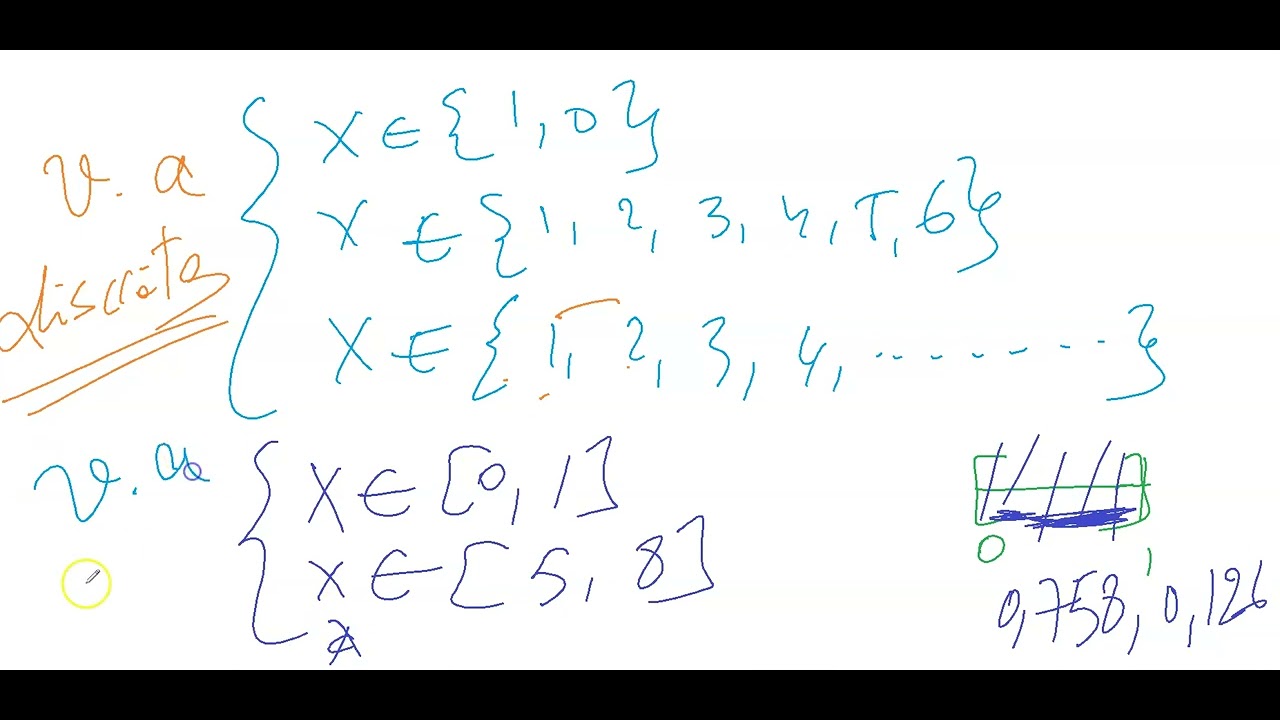 v.a discrète
X ∈ {1, 0}
X ∈ {1, 2, 3, 4, 5, 6}
X ∈ {1, 2, 3, 4, ........}
v.a
X ∈ [0, 1]
X ∈ [5, 8]
0 1
0,758, 0,126